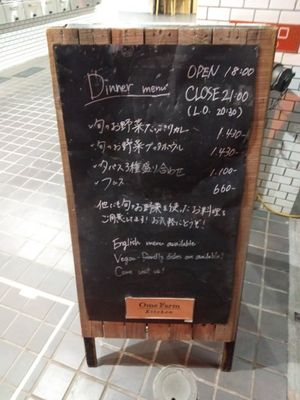 Dinner menu
OPEN 18:00
CLOSE 21:00
(L.O. 20:30)
旬のお野菜たっぷりカレー 1.430-
旬のお野菜ブッダボウル 1.430-
タパス3種盛り合わせ 1.100-
フムス 660-
他にも旬のお野菜を使ったお料理を
ご用意してます!お気軽にどうぞ!
English menu available
Vegan-friendly dishes are available!
Come visit us!
Ome Farm
Kitchen